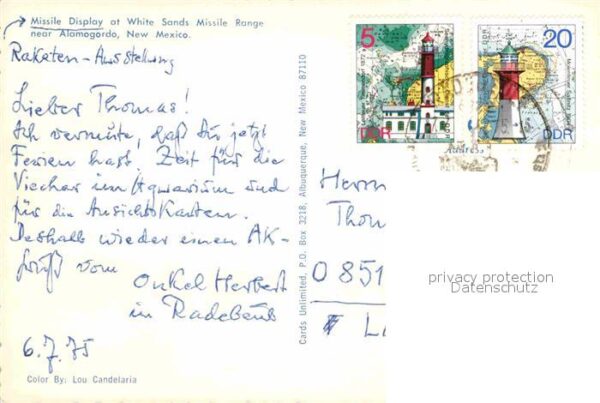 Missile Display at White Sands Missile Range
near Alamogordo, New Mexico.
Raketen-Ausstellung
Lieber Thomas!
Ich vermute, daß Du jetzt
Ferien hast. Zeit für die
Viecher im Aquarium und
für die Ansichtskarten.
Deshalb wieder einen AK-
Gruß vom
Onkel Herbert
in Radebeul
6.7.75
Color By: Lou Candelaria
Cards Unlimited, P.O. Box 3218, Albuquerque, New Mexico 87110
5
DDR
20
DDR
Address
Herrn
Thom
O 851
privacy protection
Datenschutz